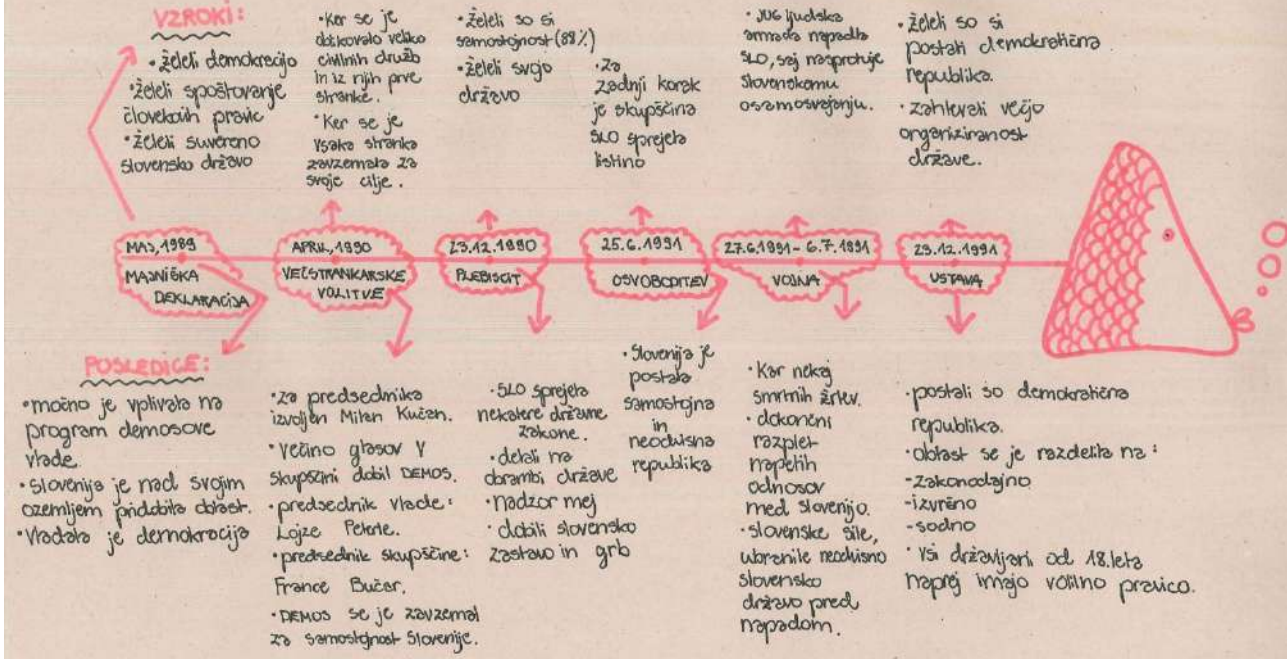 VZROKI:
• želeli demokracijo
• želeli spoštovanje
človekovih pravic
• želeli suvereno
slovensko državo
• Ker se je
oblikovalo veliko
civilnih družb
in iz njih prve
stranke.
• Ker se je
vsaka stranka
zavzemala za
svoje cilje.
• želeli so si
samostojnost (88%)
• želeli svojo
državo
• Za
zadnji korak
je skupščina
SLO sprejela
listino
• JUG ljudska
armada napadla
SLO, saj nasprotuje
slovenskemu
osamosvajanju.
• želeli so si
postati demokratična
republika.
• zahtevali večjo
organiziranost
države.
MAJ, 1989
MAJNIŠKA
DEKLARACIJA
APRIL, 1990
VEČSTRANKARSKE
VOLITVE
23.12.1990
PLEBISCIT
25.6.1991
OSVOBODITEV
27.6.1991 - 6.7.1991
VOJNA
23.12.1991
USTAVA
POSLEDICE:
• močno je vplivala na
program demosove
vlade.
• Slovenija je nad svojim
ozemljem pridobila oblast.
• Vladala je demokracija
• Za predsednika
izvoljen Milan Kučan.
• Večino glasov v
skupščini dobil DEMOS.
• predsednik vlade:
Lojze Peterle.
• predsednik skupščine:
France Bučar.
• DEMOS se je zavzemal
za samostojnost Slovenije.
• SLO sprejela
nekatere državne
zakone.
• delali na
obrambi države
• nadzor mej
• dobili slovensko
zastavo in grb
• Slovenija je
postala
samostojna
in
neodvisna
republika
• Kar nekaj
smrtnih žrtev.
• dokončni
razplet
napetih
odnosov
med slovenijo.
• slovenske sile,
ubranile neodvisno
slovensko
državo pred
napadom.
• postali so demokratična
republika.
• oblast se je razdelila na:
-zakonodajno
-izvršno
-sodno
• Vsi državljani od 18.leta
naprej imajo volilno pravico.